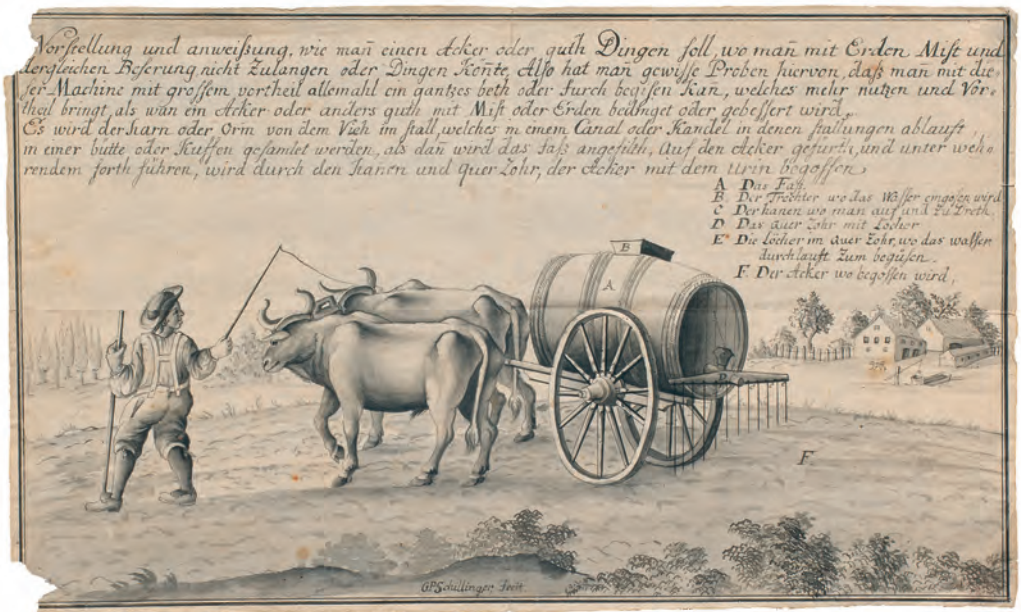 Vorstellung und anweißung, wie man̄ einen Acker oder guth Dingen soll, wo man̄ mit Erden Mist und
dergleichen Beserung nicht Zulangen oder Dingen Kon̄te, Also hat man̄ gewisse Proben hiervon, daß man̄ mit die=
ser Machine mit grossem vortheil allemahl ein gantzes beth oder furch begisen Kan̄, welches mehr nutzen und Vor=
theil bringt, als wan̄ ein Acker oder anders guth mit Mist oder Erden bedinget oder gebessert wird,
Es wird der harn oder Orin von dem Vieh im stall, welches in einem Canal oder Kandel in denen stallungen ablauft,
in einer butte oder Kuffen gesamlet werden, als dan̄ wird das faß angefilth, Auf den Acker geführth, und unter weh=
rendem forth führen, wird durch den hanen und quer Rohr, der Acker mit dem Urin begossen,
A. Das Faß.
B. Der Trechter wo das Wasser eingosen wird
C Der hanen wo man auf und zu Dreth.
D Das quer Rohr mit Löcher
E Die löcher im quer Rohr, wo das wasser
durchlauft Zum begüsen.
F. Der Acker wo begossen wird,
B
A
F.
GPSchillinger fecit